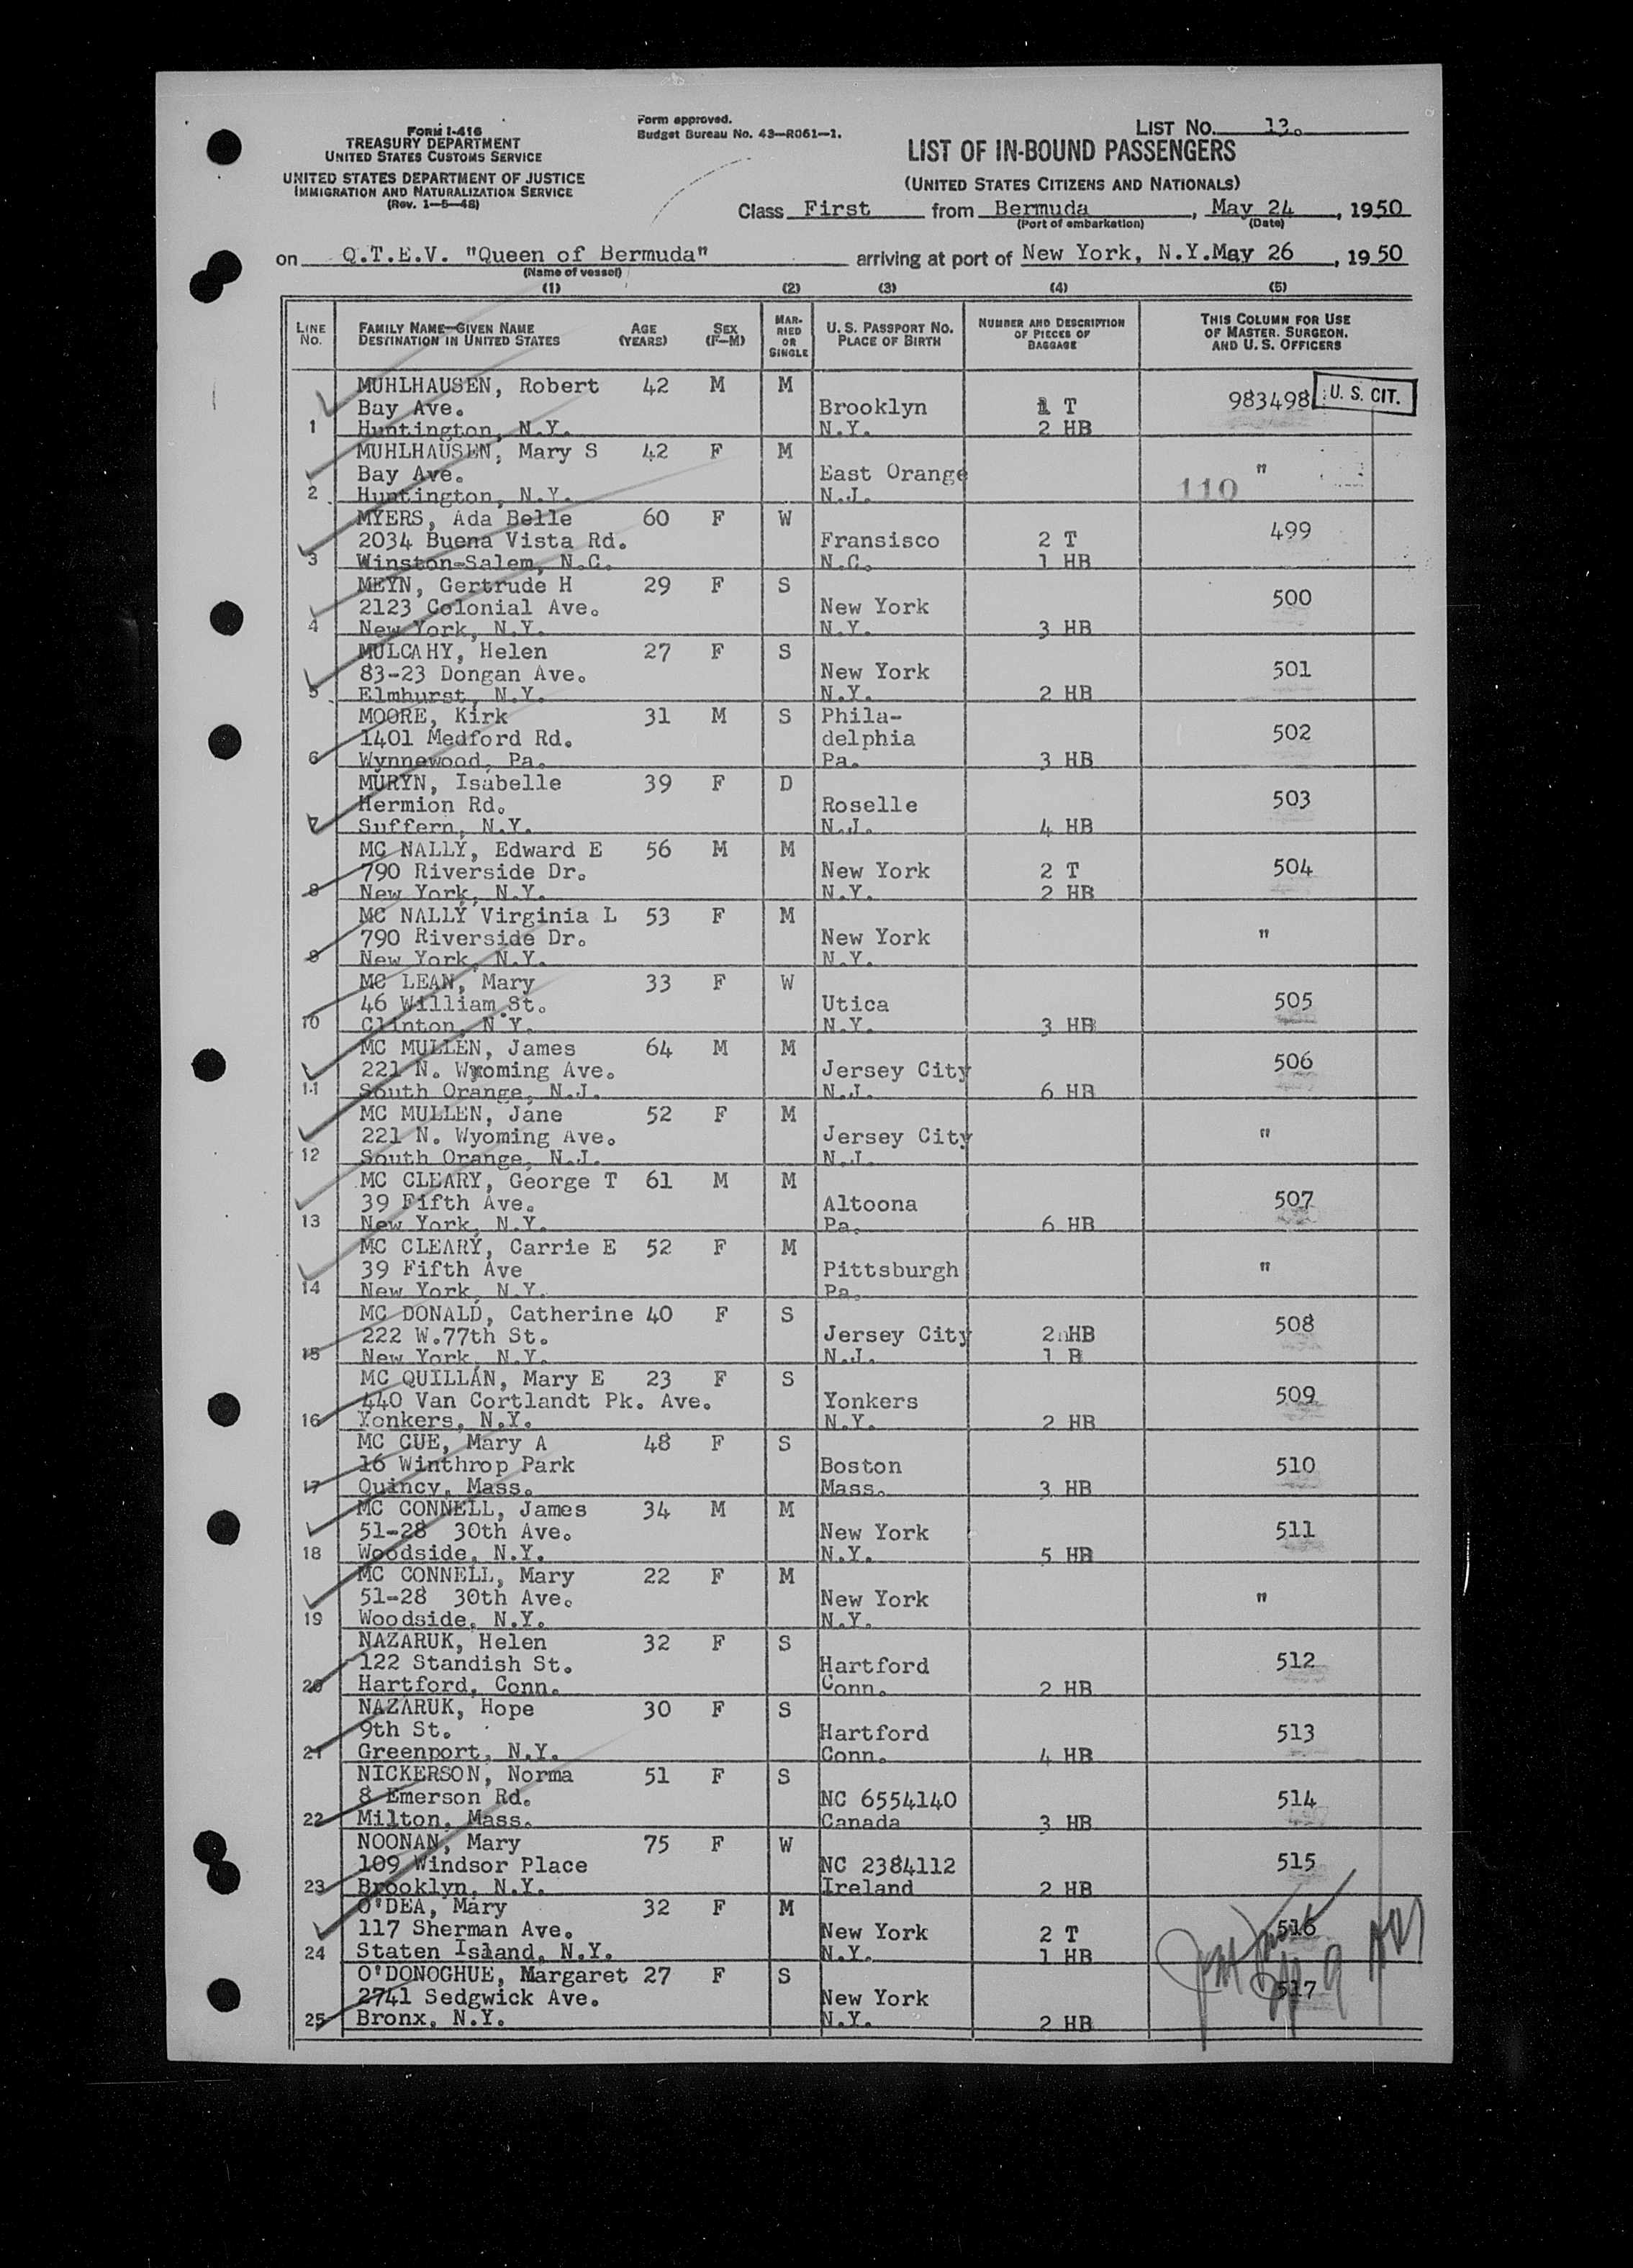 FORM I-416
TREASURY DEPARTMENT
UNITED STATES CUSTOMS SERVICE
UNITED STATES DEPARTMENT OF JUSTICE
IMMIGRATION AND NATURALIZATION SERVICE
(Rev. 1-5-48)
Form approved.
Budget Bureau No. 43-R061-1.
LIST NO. 13.
LIST OF IN-BOUND PASSENGERS
(UNITED STATES CITIZENS AND NATIONALS)
Class First from Bermuda, May 24, 1950
(Port of embarkation) (Date)
on Q.T.E.V. "Queen of Bermuda" arriving at port of New York, N.Y. May 26, 1950
(Name of vessel)
(1) (2) (3) (4) (5)
LINE NO. FAMILY NAME—GIVEN NAME DESTINATION IN UNITED STATES AGE (YEARS) SEX (F—M) MARRIED OR SINGLE U. S. PASSPORT NO. PLACE OF BIRTH NUMBER AND DESCRIPTION OF PIECES OF BAGGAGE THIS COLUMN FOR USE OF MASTER. SURGEON, AND U. S. OFFICERS
MUHLHAUSEN, Robert 42 M M 983498 U. S. CIT.
Bay Ave. Brooklyn 1 T
1 Huntington, N.Y. N.Y. 2 HB
MUHLHAUSEN, Mary S 42 F M "
Bay Ave. East Orange 110
2 Huntington, N.Y. N.J.
MYERS, Ada Belle 60 F W 499
2034 Buena Vista Rd. Fransisco 2 T
3 Winston-Salem, N.C. N.C. 1 HB
MEYN, Gertrude H 29 F S 500
2123 Colonial Ave. New York
4 New York, N.Y. N.Y. 3 HB
MULCAHY, Helen 27 F S 501
83-23 Dongan Ave. New York
5 Elmhurst, N.Y. N.Y. 2 HB
MOORE, Kirk 31 M S Phila-
1401 Medford Rd. delphia 502
6 Wynnewood, Pa. Pa. 3 HB
MURYN, Isabelle 39 F D 503
Hermion Rd. Roselle
7 Suffern, N.Y. N.J. 4 HB
MC NALLY, Edward E 56 M M 504
790 Riverside Dr. New York 2 T
8 New York, N.Y. N.Y. 2 HB
MC NALLY Virginia L 53 F M "
790 Riverside Dr. New York
9 New York, N.Y. N.Y.
MC LEAN, Mary 33 F W 505
46 William St. Utica
10 Clinton, N.Y. N.Y. 3 HB
MC MULLEN, James 64 M M 506
221 N. Wyoming Ave. Jersey City
11 South Orange, N.J. N.J. 6 HB
MC MULLEN, Jane 52 F M "
221 N. Wyoming Ave. Jersey City
12 South Orange, N.J. N.J.
MC CLEARY, George T 61 M M 507
39 Fifth Ave. Altoona
13 New York, N.Y. Pa. 6 HB
MC CLEARY, Carrie E 52 F M "
39 Fifth Ave Pittsburgh
14 New York, N.Y. Pa.
MC DONALD, Catherine 40 F S 508
222 W.77th St. Jersey City 2 HB
15 New York, N.Y. N.J. 1 B
MC QUILLAN, Mary E 23 F S 509
440 Van Cortlandt Pk. Ave. Yonkers
16 Yonkers, N.Y. N.Y. 2 HB
MC CUE, Mary A 48 F S 510
16 Winthrop Park Boston
17 Quincy, Mass. Mass. 3 HB
MC CONNELL, James 34 M M 511
51-28 30th Ave. New York
18 Woodside, N.Y. N.Y. 5 HB
MC CONNELL, Mary 22 F M "
51-28 30th Ave. New York
19 Woodside, N.Y. N.Y.
NAZARUK, Helen 32 F S 512
122 Standish St. Hartford
20 Hartford, Conn. Conn. 2 HB
NAZARUK, Hope 30 F S 513
9th St. Hartford
21 Greenport, N.Y. Conn. 4 HB
NICKERSON, Norma 51 F S 514
8 Emerson Rd. NC 6554140
22 Milton, Mass. Canada 3 HB
NOONAN, Mary 75 F W 515
109 Windsor Place NC 2384112
23 Brooklyn, N.Y. Ireland 2 HB
O'DEA, Mary 32 F M 516
117 Sherman Ave. New York 2 T
24 Staten Island, N.Y. N.Y. 1 HB
O'DONOGHUE, Margaret 27 F S 517
2741 Sedgwick Ave. New York
25 Bronx, N.Y. N.Y. 2 HB